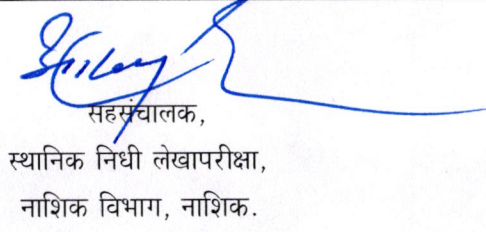 सहसंचालक,
स्थानिक निधी लेखापरीक्षा,
नाशिक विभाग, नाशिक.